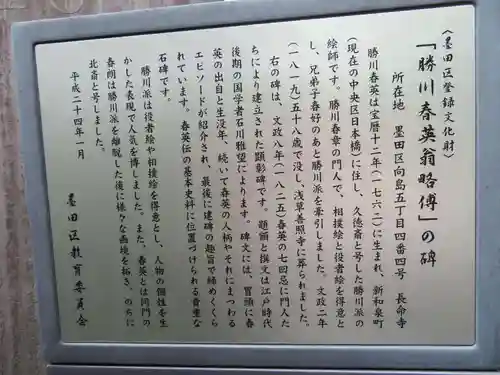 (墨田区登録文化財)
「勝川春英翁略傳」の碑
所在地　墨田区向島五丁目四番四号　長命寺
勝川春英は宝暦十二年(一七六二)に生まれ、新和泉町
(現在の中央区日本橋)に住し、久徳斎と号した勝川派の
絵師です。勝川春章の門人で、相撲絵と役者絵を得意と
し、兄弟子春好のあと勝川派を牽引しました。文政二年
(一八一九)五十八歳で没し、浅草善照寺に葬られました。
右の碑は、文政八年(一八二五)春英の七回忌に門人た
ちにより建立された顕彰碑です。題額と撰文は江戸時代
後期の国学者石川雅望によります。碑文には、冒頭に春
英の出自と生没年、続いて春英の人柄やそれにまつわる
エピソードが紹介され、最後に建碑の趣旨で締めくくら
れています。春英伝の基本史料に位置づけられる貴重な
石碑です。
勝川派は役者絵や相撲絵を得意とし、人物の個性を生
かした表現で人気を博しました。また、春英とは同門の
春朗は勝川派を離脱した後に様々な画境を拓き、のちに
北斎と号しました。
平成二十四年一月
墨田区教育委員会